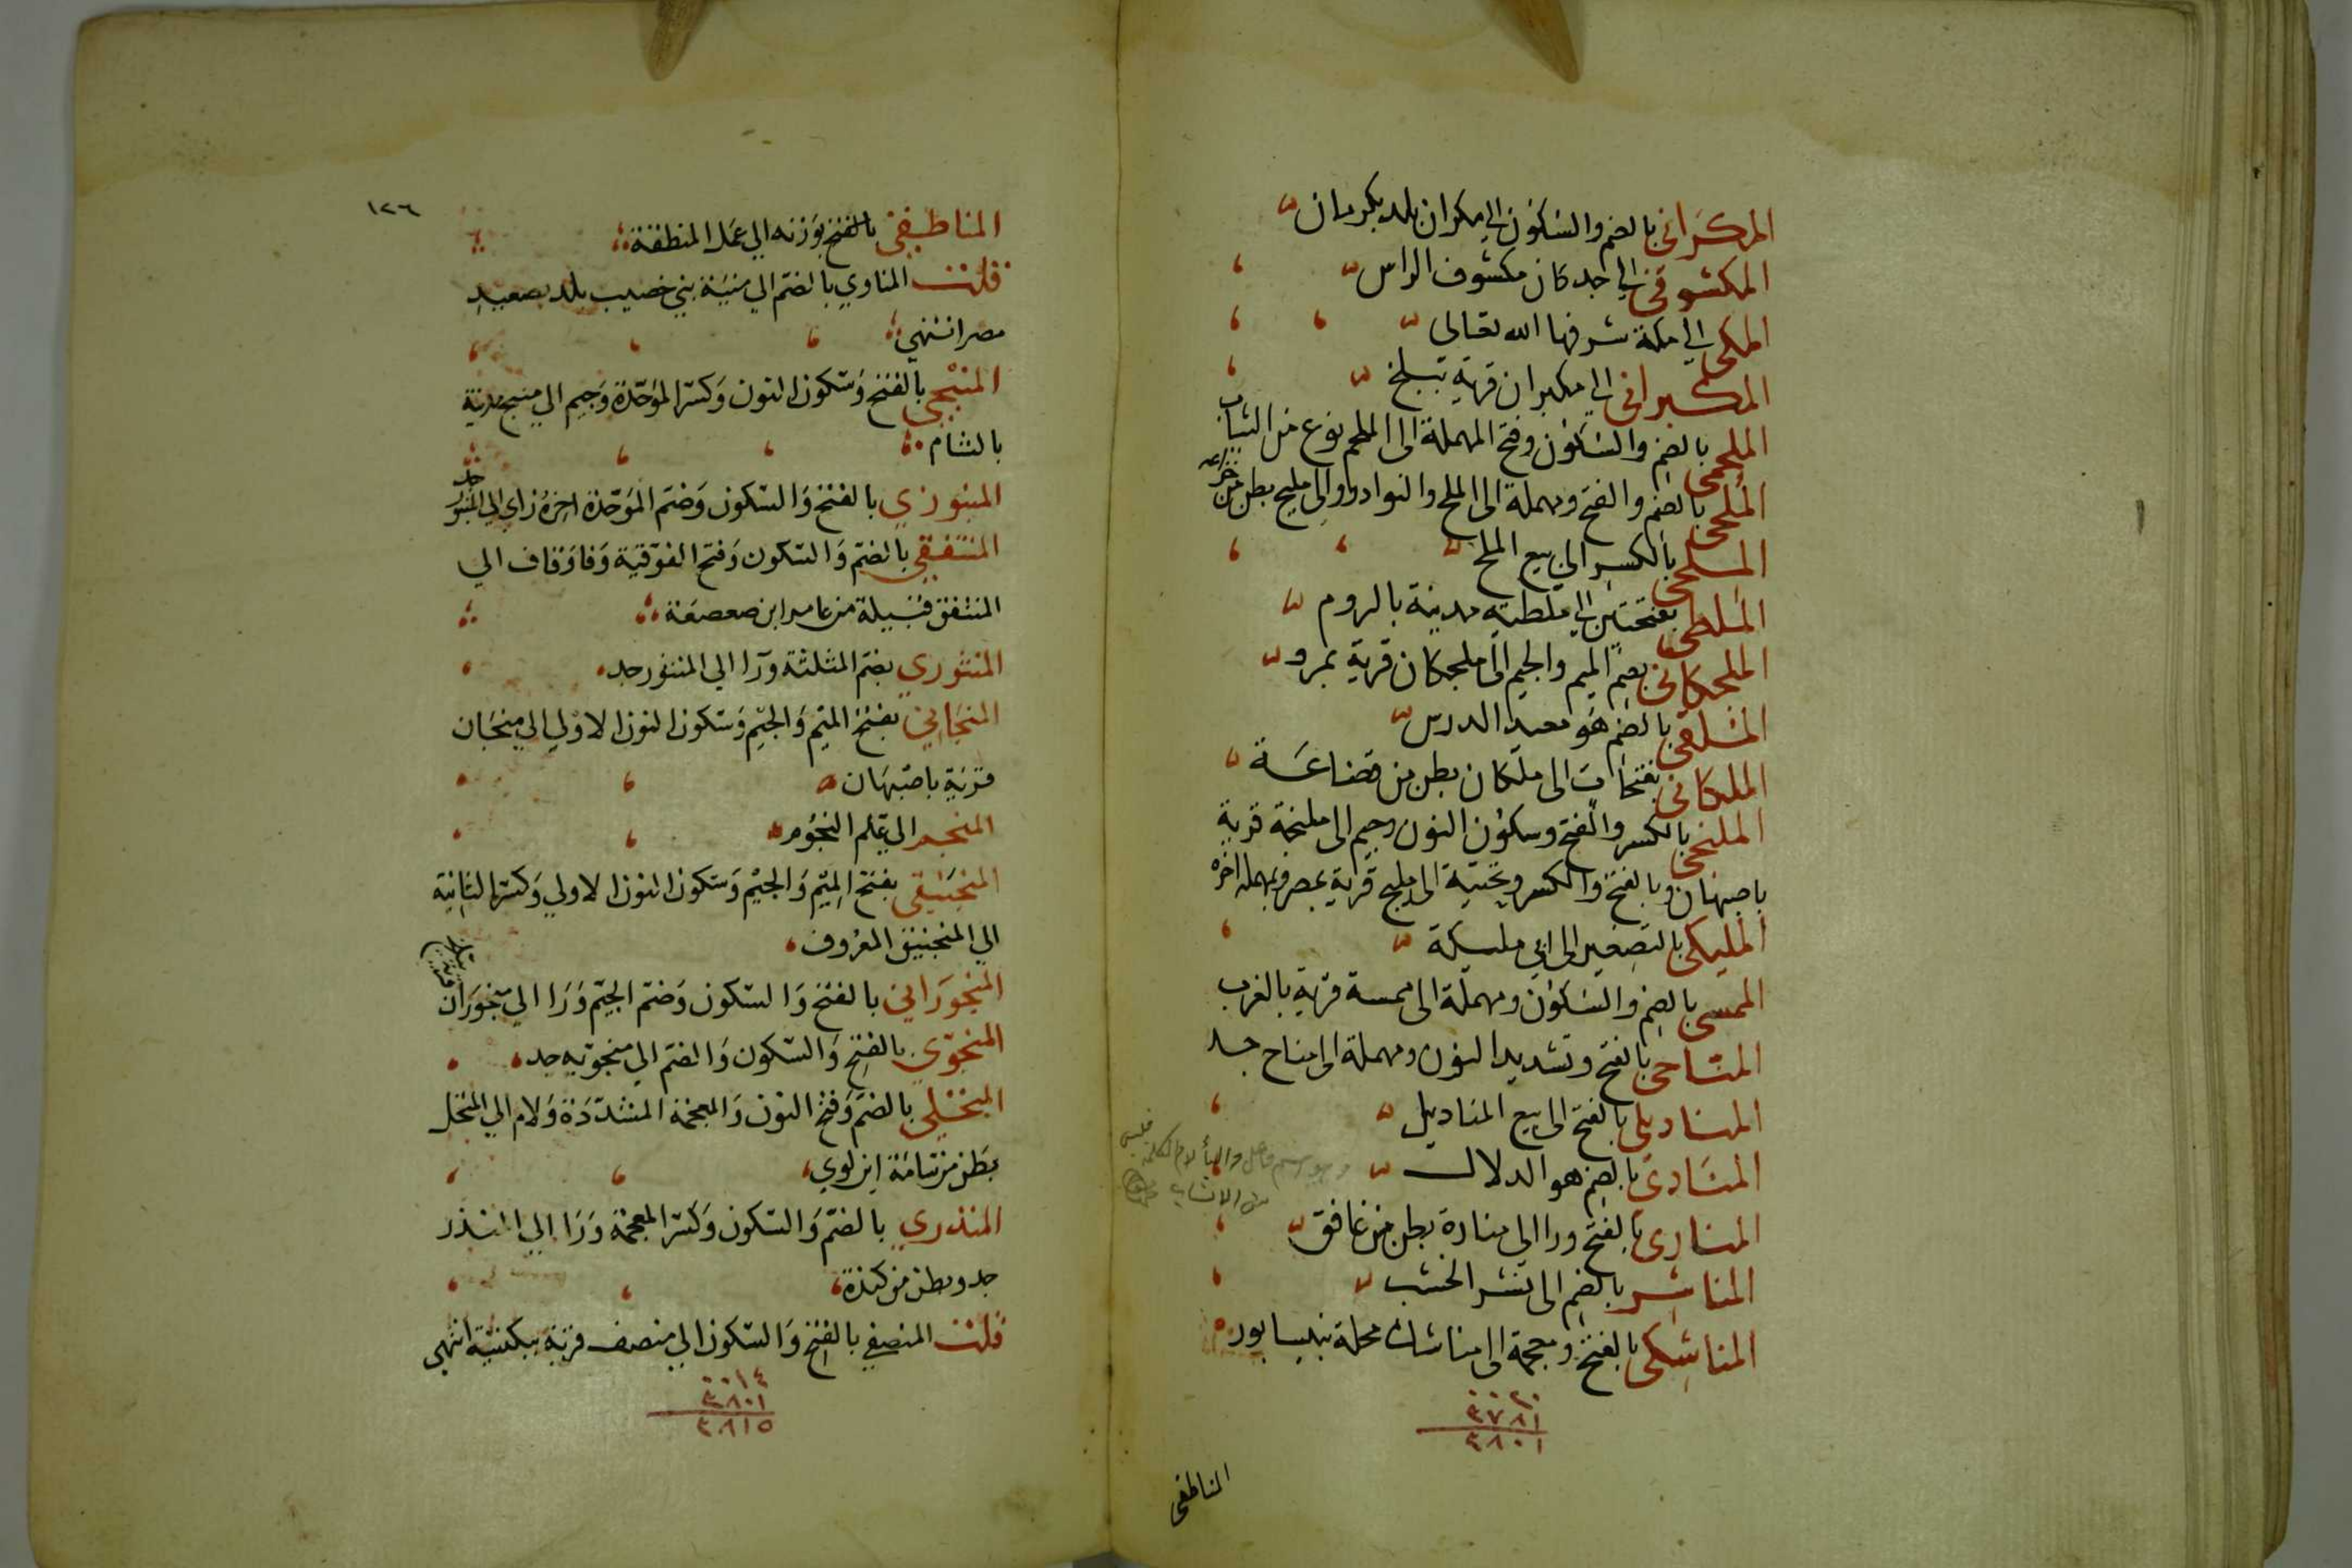 المكراني بالضم والسكون الى مكران بلد بكرمان
المكشوفي الى جد كان مكشوف الراس
المكي الى مكة شرفها الله تعالى
المكبراني الى مكبران قرية ببلخ
الملحمي بالضم والسكون وفتح المهملة الى الملحم نوع من الثياب
الملحي بالضم والفتح ومهملة الى الملح والنوادر والى مليح بطن من خزاعه
الملحي بالكسر الى بيع الملح
الملطي بفتحتين الى ملطيه مدينة بالروم
الملجكاني بضم الميم والجيم الى ملجكان قرية بمرو
الملقي بالضم هو معيد الدرس
الملكاني بفتحات الى ملكان بطن من قضاعة
الملنجي بالكسر والفتح وسكون النون وجيم الى ملنجة قرية
باصبهان وبالفتح والكسر وتحتية الى مليج قرية بمصر وبمهملة اخره
المليكي بالتصغير الى ابي مليكة
الممسي بالضم والسكون ومهملة الى ممسة قرية بالغرب
المناحي بالفتح وتشديد النون ومهملة الى مناح جد
المناديلي بالفتح الى بيع المناديل
المنادي بالضم هو الدلال
وهو اسم فاعل والياء لام الكلمة فليس
من الانساب
المناري بالفتح ورا الى منارة بطن من غافق
المناشر بالضم الى نشر الخشب
المناشكي بالفتح ومعجمة الى مناشك محلة بنيسابور
٠٠٢٠
٣٧٨١
٣٨٠١
المناطفي
١٢٦
المناطفي بالفتح بوزنه الي عمل المنطفة
قلت المناوي بالضم الي منية بني خصيب بلد بصعيد
مصر انتهي
المنبجي بالفتح وسكون النون وكسر الموحدة وجيم الي منبج مدينة
بالشام
المنبوزي بالفتح والسكون وضم الموحدة اخره زاي الي المنبوز جد
المنتفقي بالضم والسكون وفتح الفوقية وفا وقاف الي
المنتفق قبيلة من عامر ابن صعصعة
المنثوري بضم المثلثة ورا الي المنثور جد
المنجاني بفتح الميم والجيم وسكون النون الاولي الي منجان
قرية باصبهان
المنجم الي علم النجوم
المنجنيقي بفتح الميم والجيم وسكون النون الاولي وكسر الثانية
الي المنجنيق المعروف
المنجوراني بالفتح والسكون وضم الجيم ورا الي منجوران
المنجوي بالفتح والسكون والضم الي منجويه جد
المنخلي بالضم وفتح النون والمعجمة المشددة ولام الي المنخل
بطن من سامة ابن لوي
المنذري بالضم والسكون وكسر المعجمة ورا الي المنذر
جد وبطن من كندة
قلت المنصفي بالفتح والسكون الي منصف قرية ببلنسية انتهي
٠٠١٤
٣٨٠١
٣٨١٥